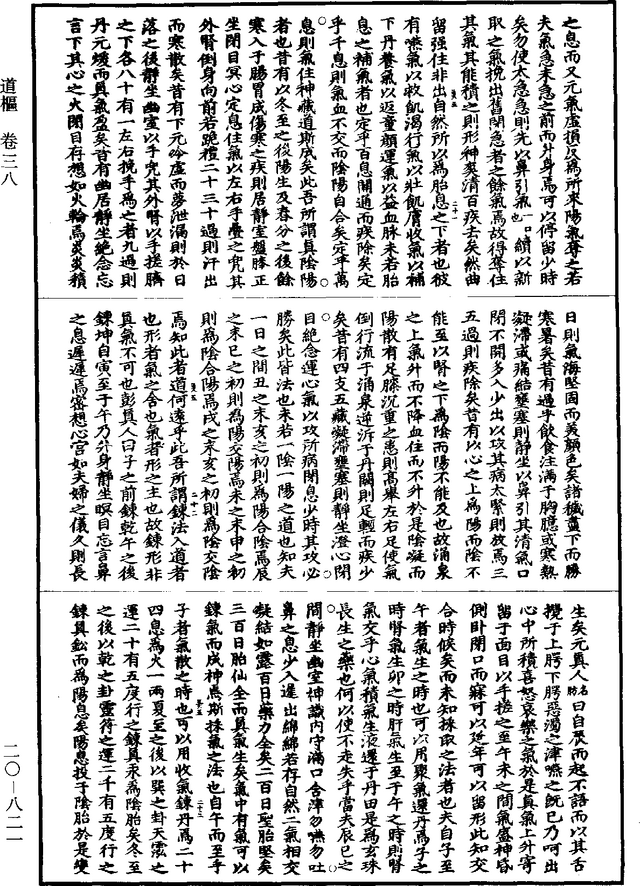 之息而又元氣虛損反為所來陽氣奪之若
夫氣急未急之前而升身焉可以停留少時
矣勿使太急急則先以鼻引氣一口續以新
取之氣換出舊閉急者之餘氣焉故得奪住
其氣其能積之則形神矣清百疾去矣然曲
留強住非出自然所以為胎息之下者也彼
有嚥氣以救飢渴行氣以壯飢膚收氣以補
下丹養氣以返童顏運氣以益血脉未若胎
息之補氣者也定乎百息開通而疾除矣定
乎千息則氣血不交而陰陽自合矣定乎萬
息則氣住神藏道斯成矣此吾所謂真陰陽
者也昔有以冬至之後陽生及春分之後餘
寒入于腸胃成傷寒之疾則居靜室盤膝正
坐閉目冥心定息住氣以左右手疊之兜其
外腎倒身向前若跪禮二十三十過則汗出
而寒散矣昔有下元冷虛而夢泄漏則於日
落之後靜坐幽室以手兜其外腎以手搓臍
之下各八十有一左右換手為之者九過則
丹元煖而真氣盈矣昔有幽居靜坐絕念忘
言下其心之火閉目存想如火輪焉炎炎積
日則氣海堅固而美顏色矣諸穢蠹下而勝
寒暑矣昔有過乎飲食注滿于胸臆或寒熱
凝滯或痛結壅塞則靜坐以鼻引其清氣口
閉不開多入少出以攻其病太緊則放焉三
五過則疾除矣昔有以心之上為陽而陰不
能至以腎之下為陰而陽不能及也故涌泉
之上氣升而不降血住而不升於是陰凝而
陽散有足膝沉重之患則高舉左右足使氣
倒行流于涌泉逆泝于丹闕則足輕而疾少
矣昔有四支五藏凝滯壅塞則靜坐澄心閉
目絕念運心氣以攻所病閉息少時其攻必
勝矣此皆法也未若一陰一陽之道也知夫
一日之間丑之末亥之初則為陽合陰焉辰
之末巳之初則為陽交陽焉未之末申之初
則為陰合陽焉戌之末亥之初則為陰交陰
焉知此者道何遠乎此吾所謂鍊法入道者
也形者氣之舍也氣者形之主也故鍊形非
真氣不可也彭真人曰子之前鍊乾午之後
鍊坤自寅至于午乃升身靜坐瞑目忘言鼻
之息遲遲焉密想心宮如夫婦之儀久則長
生矣元真人名昉曰自辰而起不語而以其舌
攪于上腭下腭惡濁之津嚥之既已乃呵出
心中所積喜怒哀樂之氣於是真氣上升寄
留于面目以手搓之至午未之間氣盛神昏
側卧閉口而寐可以延年可以留形此知交
合時候矣而未知採取之法者也夫自子至
午者氣生之時也可以用聚氣還丹焉子之
時腎氣生卯之時肝氣生至于午之時則腎
氣交乎心氣積氣生液還于丹田是為玄珠
長生之藥也何以使不走失乎當夫辰巳之
間靜坐幽室神識內守滿口含津勿嚥勿吐
鼻之息少入遲出綿綿若存自然二氣相交
凝結如露百日藥力全矣二百日聖胎堅矣
三百日胎仙全而真氣生矣氣中有氣可以
鍊氣而成神焉斯採氣之法也自午而至乎
子者氣散之時也可以用收氣鍊丹焉二十
四息為火一兩夏至之後以巽之卦天霑之
運二十有五度行之鍊真汞為陰胎矣冬至
之後以乾之卦靈符之運二千有五度行之
鍊真鈆而為陽息矣陽息投于陰胎於是變
道樞 卷三八
二〇—八二一